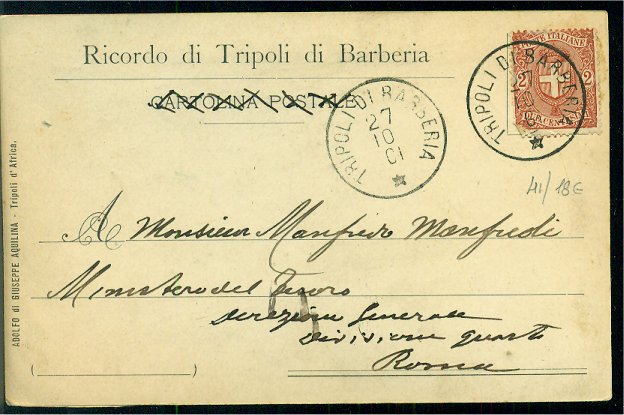 Ricordo di Tripoli di Barberia
CARTOLINA POSTALE
TRIPOLI DI BARBERIA
27
10
01
TRIPOLI DI BARBERIA
POSTE ITALIANE
2 2
DUE CENTESIMI
41/18€
A Monsieur Manfredo Manfredi
Ministero del Tesoro
direzione Generale
divisione quarta
Roma
ADOLFO di GIUSEPPE AQUILINA - Tripoli d'Africa.